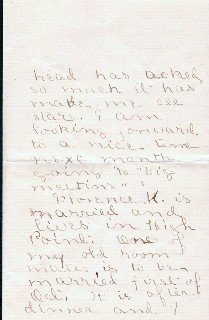 head has ached
so much it has
made me see
stars. I am
looking forward
to a nice time
next month
going to "big
meetin".
Florence K. is
married and
lives in High
Point. One of
my old room
mates is to be
married first of
Oct. It is after
dinner and I